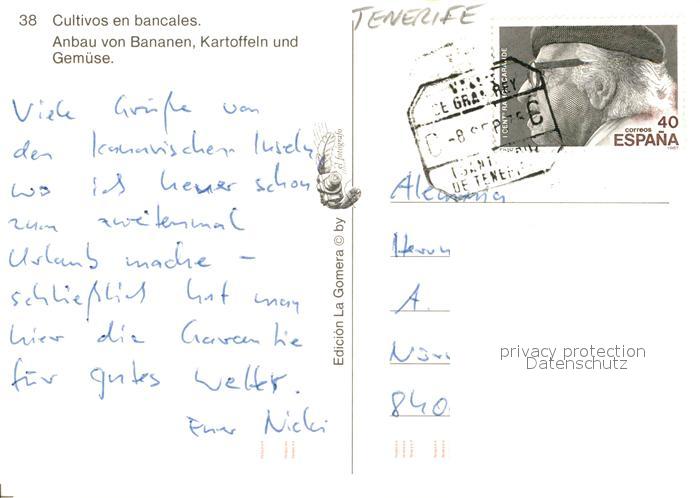 38 Cultivos en bancales.
Anbau von Bananen, Kartoffeln und
Gemüse.
Viele Grüße von
den Kanarischen Inseln,
wo ich heuer schon
zum zweitenmal
Urlaub mache –
schließlich hat man
hier die Garantie
für gutes Wetter.
Euer Nicki
Edición La Gomera © by
el fotógrafo
TENERIFE
VALLE
DE GRAN REY
-8 SEP
DE TENERI
I CENT.
40
correos
ESPAÑA
Alemania
Herrn
A.
Nür
840
privacy protection
Datenschutz